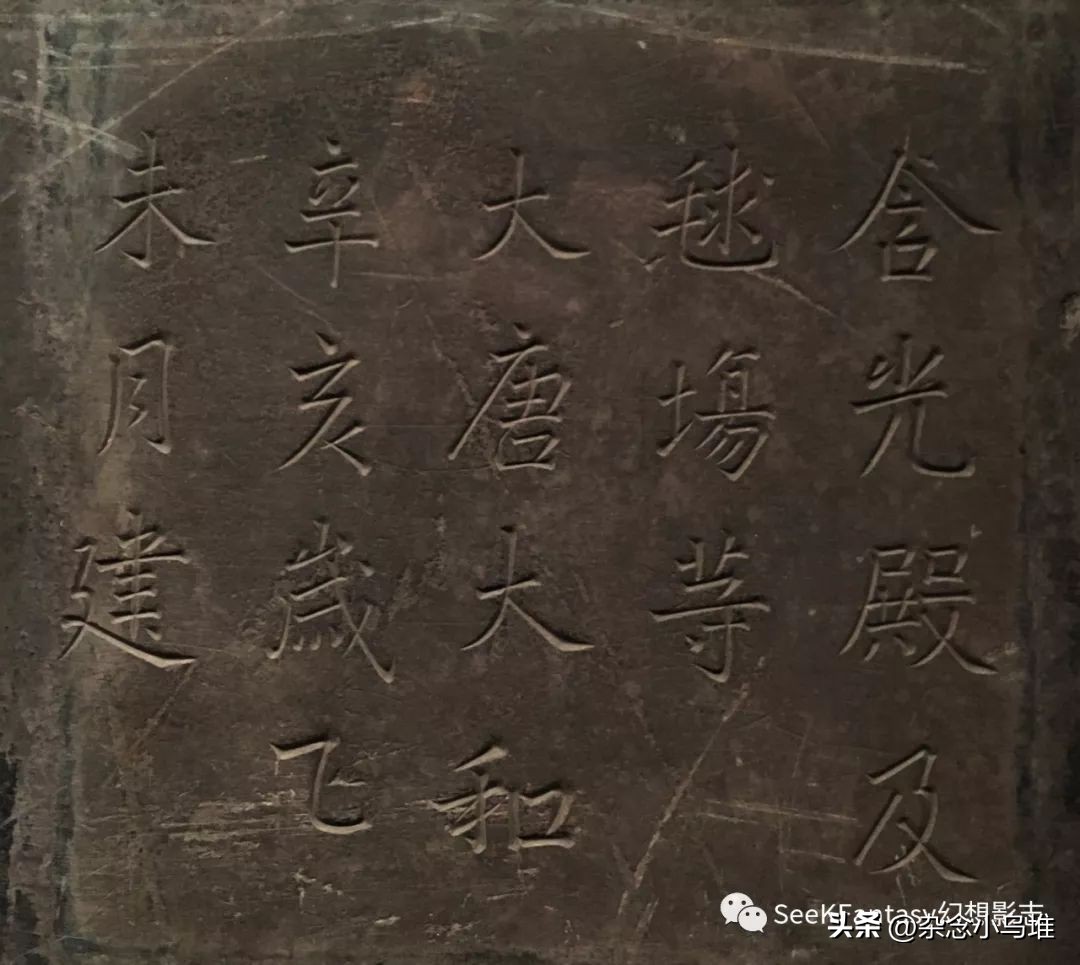 含光殿及
毬場等
大唐大和
辛亥歲乙
未月建
SeeKFantasy幻想影志
头条 @杂念小乌堆